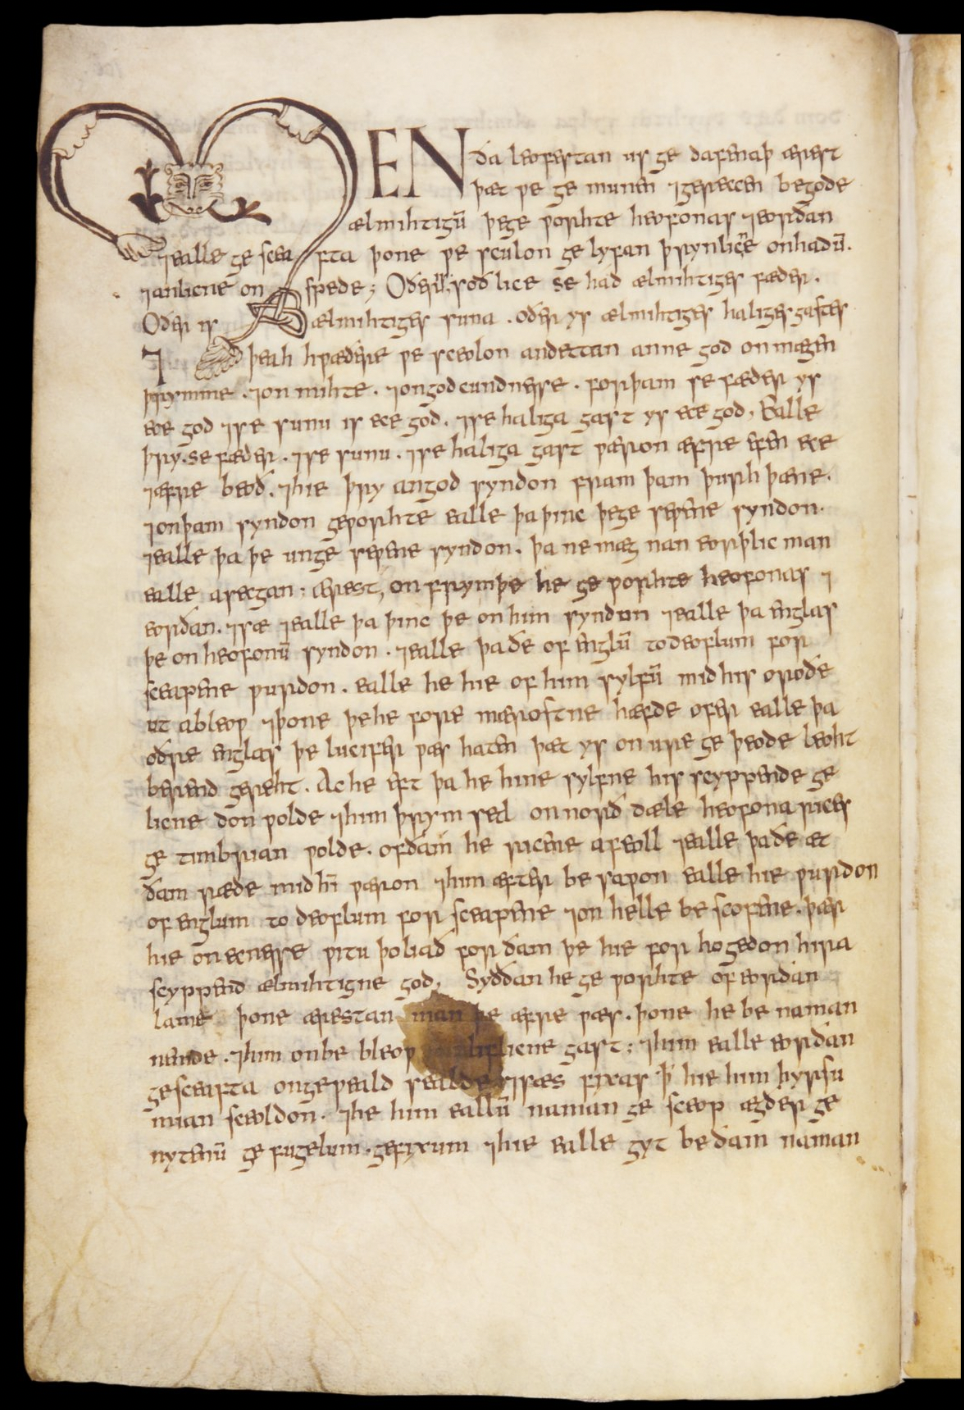 MEN ða leofestan us ge dafenaþ ærest
þæt ƿe ge munen ⁊gereccen begode
ælmihtigū þege ƿorhte heofonas ⁊eorðan
⁊ealle ge scea fta þone ƿe sculon ge lyfan þrynlicne onhadū.
⁊anlicne on spede; Oðer is soðlice se had ælmihtiges fæder.
Oðer is ælmihtiges suna . oðer ys ælmihtiges haliges gastes
⁊ þeah hƿæðere ƿe sceolon andettan anne god on mægen
þrymme . ⁊on mihte . ⁊ongodcundnesse . forþam se fæder ys
ece god ⁊se sunu is ece god . ⁊se haliga gast ys ece god, Ealle
þry . se fæder . ⁊se sunu . ⁊se haliga gast ƿæron æfre efen ece
⁊æfre beoð . ⁊hie þry angod syndon fram þam þurh þæne .
⁊onþam syndon geƿorhte ealle þa þinc þege seƿene syndon .
⁊ealle þa þe unge seƿene syndon . þa ne mæg nan eorþlic man
ealle asecgan . Ærest, on frymþe he ge ƿorhte heofonas ⁊
eorðan . ⁊sæ ⁊ealle þa þinc þe on him syndon ⁊ealle þa englas
þe on heofonū syndon . ⁊ealle þa ðe of englū to deoflum for
sceapene ƿurdon . ealle he hie of him sylfū mid his oroðe
ut ableoƿ ⁊þone þe he fore mærostne hæfde ofer ealle þa
oðre englas þe lucifer ƿæs haten þæt ys on ure ge þeode leoht
berend gereht . Ac he eft þa he hine sylfne his scyppende ge
licne don ƿolde ⁊him þrym setl on norð dæle heofona rices
ge timbrian ƿolde . ofðam he ricene afeoll ⁊ealle þa ðe æt
ðam ræde mid hī ƿæron ⁊him æfter be saƿon ealle hie ƿurdon
of englum to deoflum for sceapene ⁊on helle be scofene . þær
hie on ecnesse ƿitu þoliað for ðam þe hie for hogedon hira
scyppend ælmihtigne god, Syððan he ge ƿorhte of eorðan
lame þone ærestan man þe æfre ƿæs . þone he be naman
nemde . ⁊him onbe bleoƿ licne gast : ⁊him ealle eorðan
gesceafta ongeƿeald sealde ⁊sæs fixas þ̄ hie him hyrsu
mian sceoldon . ⁊he him eallū naman ge sceop ægðer ge
nytenū ge fugelum . gefixum ⁊hie ealle gyt be ðam naman